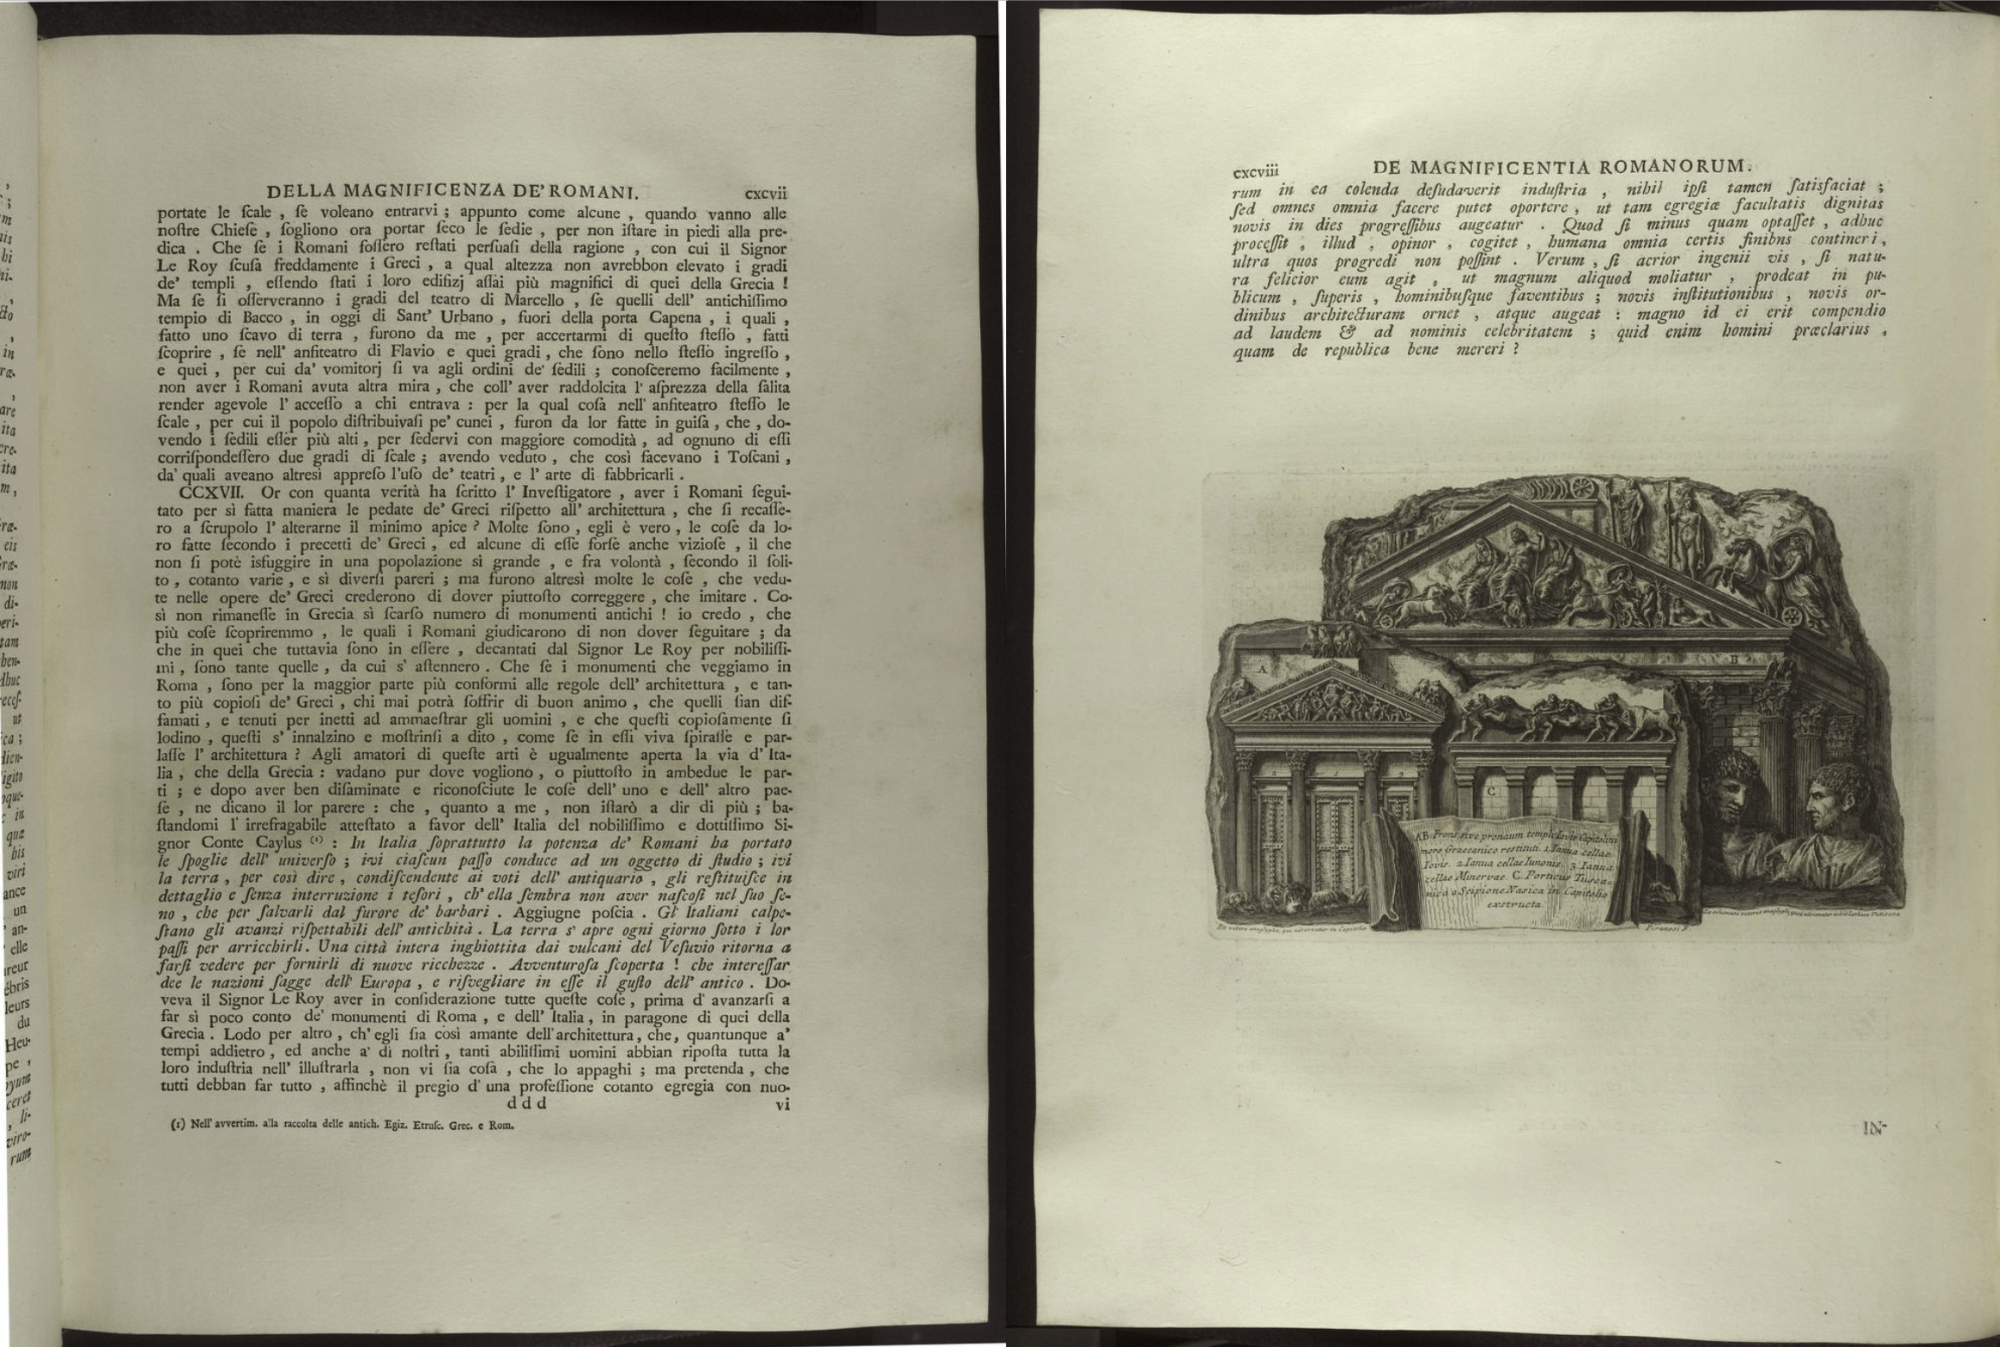 DELLA MAGNIFICENZA DE' ROMANI. cxcvii
portate le ſcale , ſe voleano entrarvi ; appunto come alcune , quando vanno alle
noſtre Chieſe , ſogliono ora portar ſeco le ſedie , per non iſtare in piedi alla pre-
dica . Che ſe i Romani foſſero reſtati perſuaſi della ragione , con cui il Signor
Le Roy ſcuſa freddamente i Greci , a qual altezza non avrebbon elevato i gradi
de' templi , eſſendo ſtati i loro edifizj aſſai più magnifici di quei della Grecia !
Ma ſe ſi oſſerveranno i gradi del teatro di Marcello , ſe quelli dell' antichiſſimo
tempio di Bacco , in oggi di Sant' Urbano , fuori della porta Capena , i quali ,
fatto uno ſcavo di terra , furono da me , per accertarmi di queſto ſteſſo , fatti
ſcoprire , ſe nell' anfiteatro di Flavio e quei gradi , che ſono nello ſteſſo ingreſſo ,
e quei , per cui da' vomitorj ſi va agli ordini de' ſedili ; conoſceremo facilmente ,
non aver i Romani avuta altra mira , che coll' aver raddolcita l' aſprezza della ſalita
render agevole l' acceſſo a chi entrava : per la qual coſa nell' anfiteatro ſteſſo le
ſcale , per cui il popolo diſtribuivaſi pe' cunei , furon da lor fatte in guiſa , che , do-
vendo i ſedili eſſer più alti , per ſedervi con maggiore comodità , ad ognuno di eſſi
corriſpondeſſero due gradi di ſcale ; avendo veduto , che così facevano i Toſcani ,
da' quali aveano altresì appreſo l'uſo de' teatri , e l' arte di fabbricarli .
CCXVII. Or con quanta verità ha ſcritto l' Inveſtigatore , aver i Romani ſegui-
tato per sì fatta maniera le pedate de' Greci riſpetto all' architettura , che ſi recaſſe-
ro a ſcrupolo l' alterarne il minimo apice ? Molte ſono , egli è vero , le coſe da lo-
ro fatte ſecondo i precetti de' Greci , ed alcune di eſſe forſe anche vizioſe , il che
non ſi potè isfuggire in una popolazione sì grande , e fra volontà , ſecondo il ſoli-
to , cotanto varie , e sì diverſi pareri ; ma furono altresì molte le coſe , che vedu-
te nelle opere de' Greci crederono di dover piuttoſto correggere , che imitare . Co-
sì non rimaneſſe in Grecia sì ſcarſo numero di monumenti antichi ! io credo , che
più coſe ſcopriremmo , le quali i Romani giudicarono di non dover ſeguitare ; da
che in quei che tuttavia ſono in eſſere , decantati dal Signor Le Roy per nobiliſſi-
mi , ſono tante quelle , da cui s' aſtennero . Che ſe i monumenti che veggiamo in
Roma , ſono per la maggior parte più conformi alle regole dell' architettura , e tan-
to più copioſi de' Greci , chi mai potrà ſoffrir di buon animo , che quelli ſian dif-
famati , e tenuti per inetti ad ammaeſtrar gli uomini , e che queſti copioſamente ſi
lodino , queſti s' innalzino e moſtrinſi a dito , come ſe in eſſi viva ſpiraſſe e par-
laſſe l' architettura ? Agli amatori di queſte arti è ugualmente aperta la via d' Ita-
lia , che della Grecia : vadano pur dove vogliono , o piuttoſto in ambedue le par-
ti ; e dopo aver ben diſaminate e riconoſciute le coſe dell' uno e dell' altro pae-
ſe , ne dicano il lor parere : che , quanto a me , non iſtarò a dir di più ; ba-
ſtandomi l' irrefragabile atteſtato a favor dell' Italia del nobiliſſimo e dottiſſimo Si-
gnor Conte Caylus (1) : In Italia ſoprattutto la potenza de' Romani ha portato
le ſpoglie dell' univerſo ; ivi ciaſcun paſſo conduce ad un oggetto di ſtudio ; ivi
la terra , per così dire , condiſcendente ai voti dell' antiquario , gli reſtituiſce in
dettaglio e ſenza interruzione i teſori , ch' ella ſembra non aver naſcoſi nel ſuo ſe-
no , che per ſalvarli dal furore de' barbari . Aggiugne poſcia . Gl' Italiani calpe-
ſtano gli avanzi riſpettabili dell' antichità . La terra s' apre ogni giorno ſotto i lor
paſſi per arricchirli . Una città intera inghiottita dai vulcani del Veſuvio ritorna a
farſi vedere per fornirli di nuove ricchezze . Avventuroſa ſcoperta ! che intereſſar
dee le nazioni ſagge dell' Europa , e riſvegliare in eſſe il guſto dell' antico . Do-
veva il Signor Le Roy aver in conſiderazione tutte queſte coſe , prima d' avanzarſi a
far sì poco conto de' monumenti di Roma , e dell' Italia , in paragone di quei della
Grecia . Lodo per altro , ch' egli ſia così amante dell' architettura , che , quantunque a'
tempi addietro , ed anche a' dì noſtri , tanti abiliſſimi uomini abbian ripoſta tutta la
loro induſtria nell' illuſtrarla , non vi ſia coſa , che lo appaghi ; ma pretenda , che
tutti debban far tutto , affinchè il pregio d' una profeſſione cotanto egregia con nuo-
d d d vi
(1) Nell' avvertim. alla raccolta delle antich. Egiz. Etruſc. Grec. e Rom.
cxcviii DE MAGNIFICENTIA ROMANORUM.
rum in ea colenda deſudaverit induſtria , nihil ipſi tamen ſatisfaciat ;
ſed omnes omnia facere putet oportere , ut tam egregiæ facultatis dignitas
novis in dies progreſſibus augeatur . Quod ſi minus quam optaſſet , adhuc
proceſſit , illud , opinor , cogitet , humana omnia certis finibus contineri ,
ultra quos progredi non poſſint . Verum , ſi acrior ingenii vis , ſi natu-
ra felicior eum agit , ut magnum aliquod moliatur , prodeat in pu-
blicum , ſuperis , hominibuſque faventibus ; novis inſtitutionibus , novis or-
dinibus architecturam ornet , atque augeat : magno id ei erit compendio
ad laudem & ad nominis celebritatem ; quid enim homini præclarius ,
quam de republica bene mereri ?
A
B
2 1 3
C
AB. Frons, sive pronaum templi Iovis Capitolini
more Graecanico restituti. 1. Ianua cellae
Iovis. 2. Ianua cellae Iunonis. 3. Ianua
cellae Minervae. C. Porticus Tusca-
nica a Scipione Nasica in Capitolio
exstructa.
Ex vetere anaglypho, quod asservatur in Capitolio
Piranesi F.
IN-